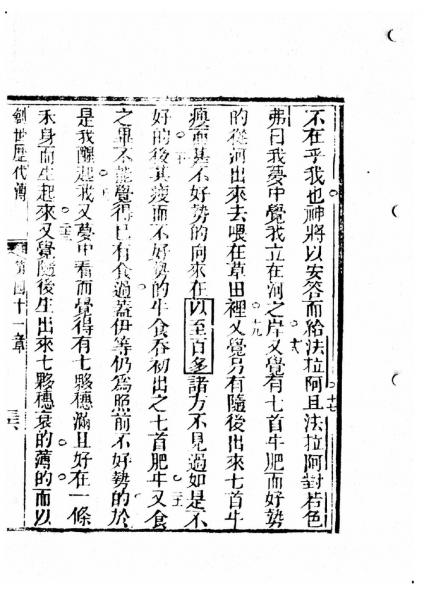 不在乎我也神將以安答而給法拉阿且法拉阿對若色
十七
弗曰我夢中覺我立在河之岸又覺有七首牛肥而好勢
十八
的從河出來去喂在草田裡又覺另有隨後出來七首牛
十九
瘦而甚不好勢的向來在以至百多諸方不見過如是不
二十
好的後其瘦而不好勢的牛食吞初出之七首肥牛又食
二一
之畢不能覺得已有食過蓋伊等仍為照前不好勢的於
是我醒起我又夢中看而覺得有七夥穗滿且好在一條
二二
禾身而生起來又覺隨後生出來七夥穗衰的薄的而以
二三
創世歷代傳 第四十一章